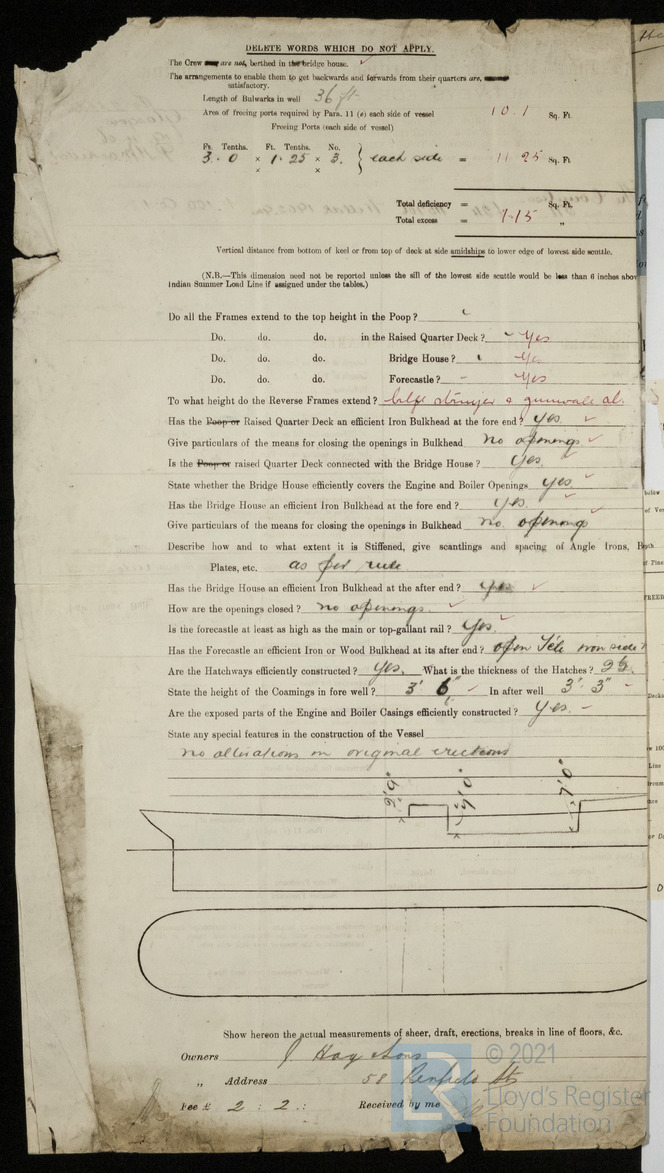 DELETE WORDS WHICH DO NOT APPLY.
The Crew are not, berthed in the bridge house.
The arrangements to enable them to get backwards and forwards from their quarters are,
satisfactory.
Length of Bulwarks in well 36 ft
Area of freeing ports required by Para. 11 (e) each side of vessel 10.1 Sq. Ft.
Freeing Ports (each side of vessel)
Ft. Tenths. Ft. Tenths. No.
3. 0 × 1. 25 × 3. } each side = 11.25 Sq. Ft
×
Total deficiency = Sq. Ft.
Total excess = 1.15 „
Vertical distance from bottom of keel or from top of deck at side amidships to lower edge of lowest side scuttle.
(N.B.—This dimension need not be reported unless the sill of the lowest side scuttle would be less than 6 inches abov
Indian Summer Load Line if assigned under the tables.)
Do all the Frames extend to the top height in the Poop?
Do. do. do. in the Raised Quarter Deck? Yes
Do. do. do. Bridge House? Yes
Do. do. do. Forecastle? Yes
To what height do the Reverse Frames extend? bilge stringer & gunwale al.
Has the Poop or Raised Quarter Deck an efficient Iron Bulkhead at the fore end? Yes.
Give particulars of the means for closing the openings in Bulkhead no openings
Is the Poop or raised Quarter Deck connected with the Bridge House? Yes.
State whether the Bridge House efficiently covers the Engine and Boiler Openings Yes
Has the Bridge House an efficient Iron Bulkhead at the fore end? Yes.
Give particulars of the means for closing the openings in Bulkhead no openings
Describe how and to what extent it is Stiffened, give scantlings and spacing of Angle Irons, B
Plates, etc. as per rule
Has the Bridge House an efficient Iron Bulkhead at the after end? yes
How are the openings closed? no openings.
Is the forecastle at least as high as the main or top-gallant rail? Yes.
Has the Forecastle an efficient Iron or Wood Bulkhead at its after end? open iron side
Are the Hatchways efficiently constructed? Yes. What is the thickness of the Hatches? 2½
State the height of the Coamings in fore well? 3' 6" In after well 3'. 3"
Are the exposed parts of the Engine and Boiler Casings efficiently constructed? Yes.
State any special features in the construction of the Vessel
no alterations in original erections
7'0"
7'0"
Show hereon the actual measurements of sheer, draft, erections, breaks in line of floors, &c.
Owners J Hay Sons
„ Address 58 Renfield St
Fee £ 2 : 2 .: Received by me
© 2021
Lloyd's Register
Foundation